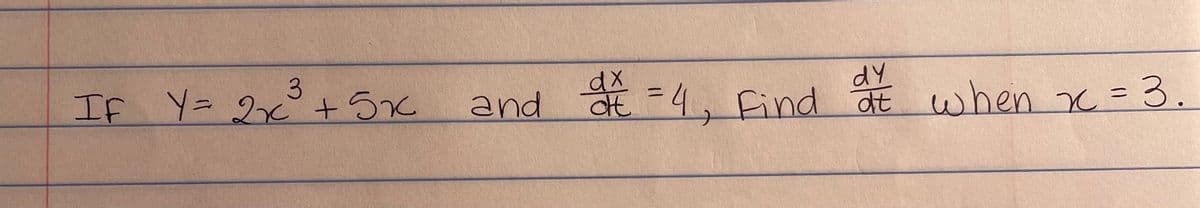 If y = 2x³ + 5x and dx/dt = 4, Find dy/dt when x = 3.